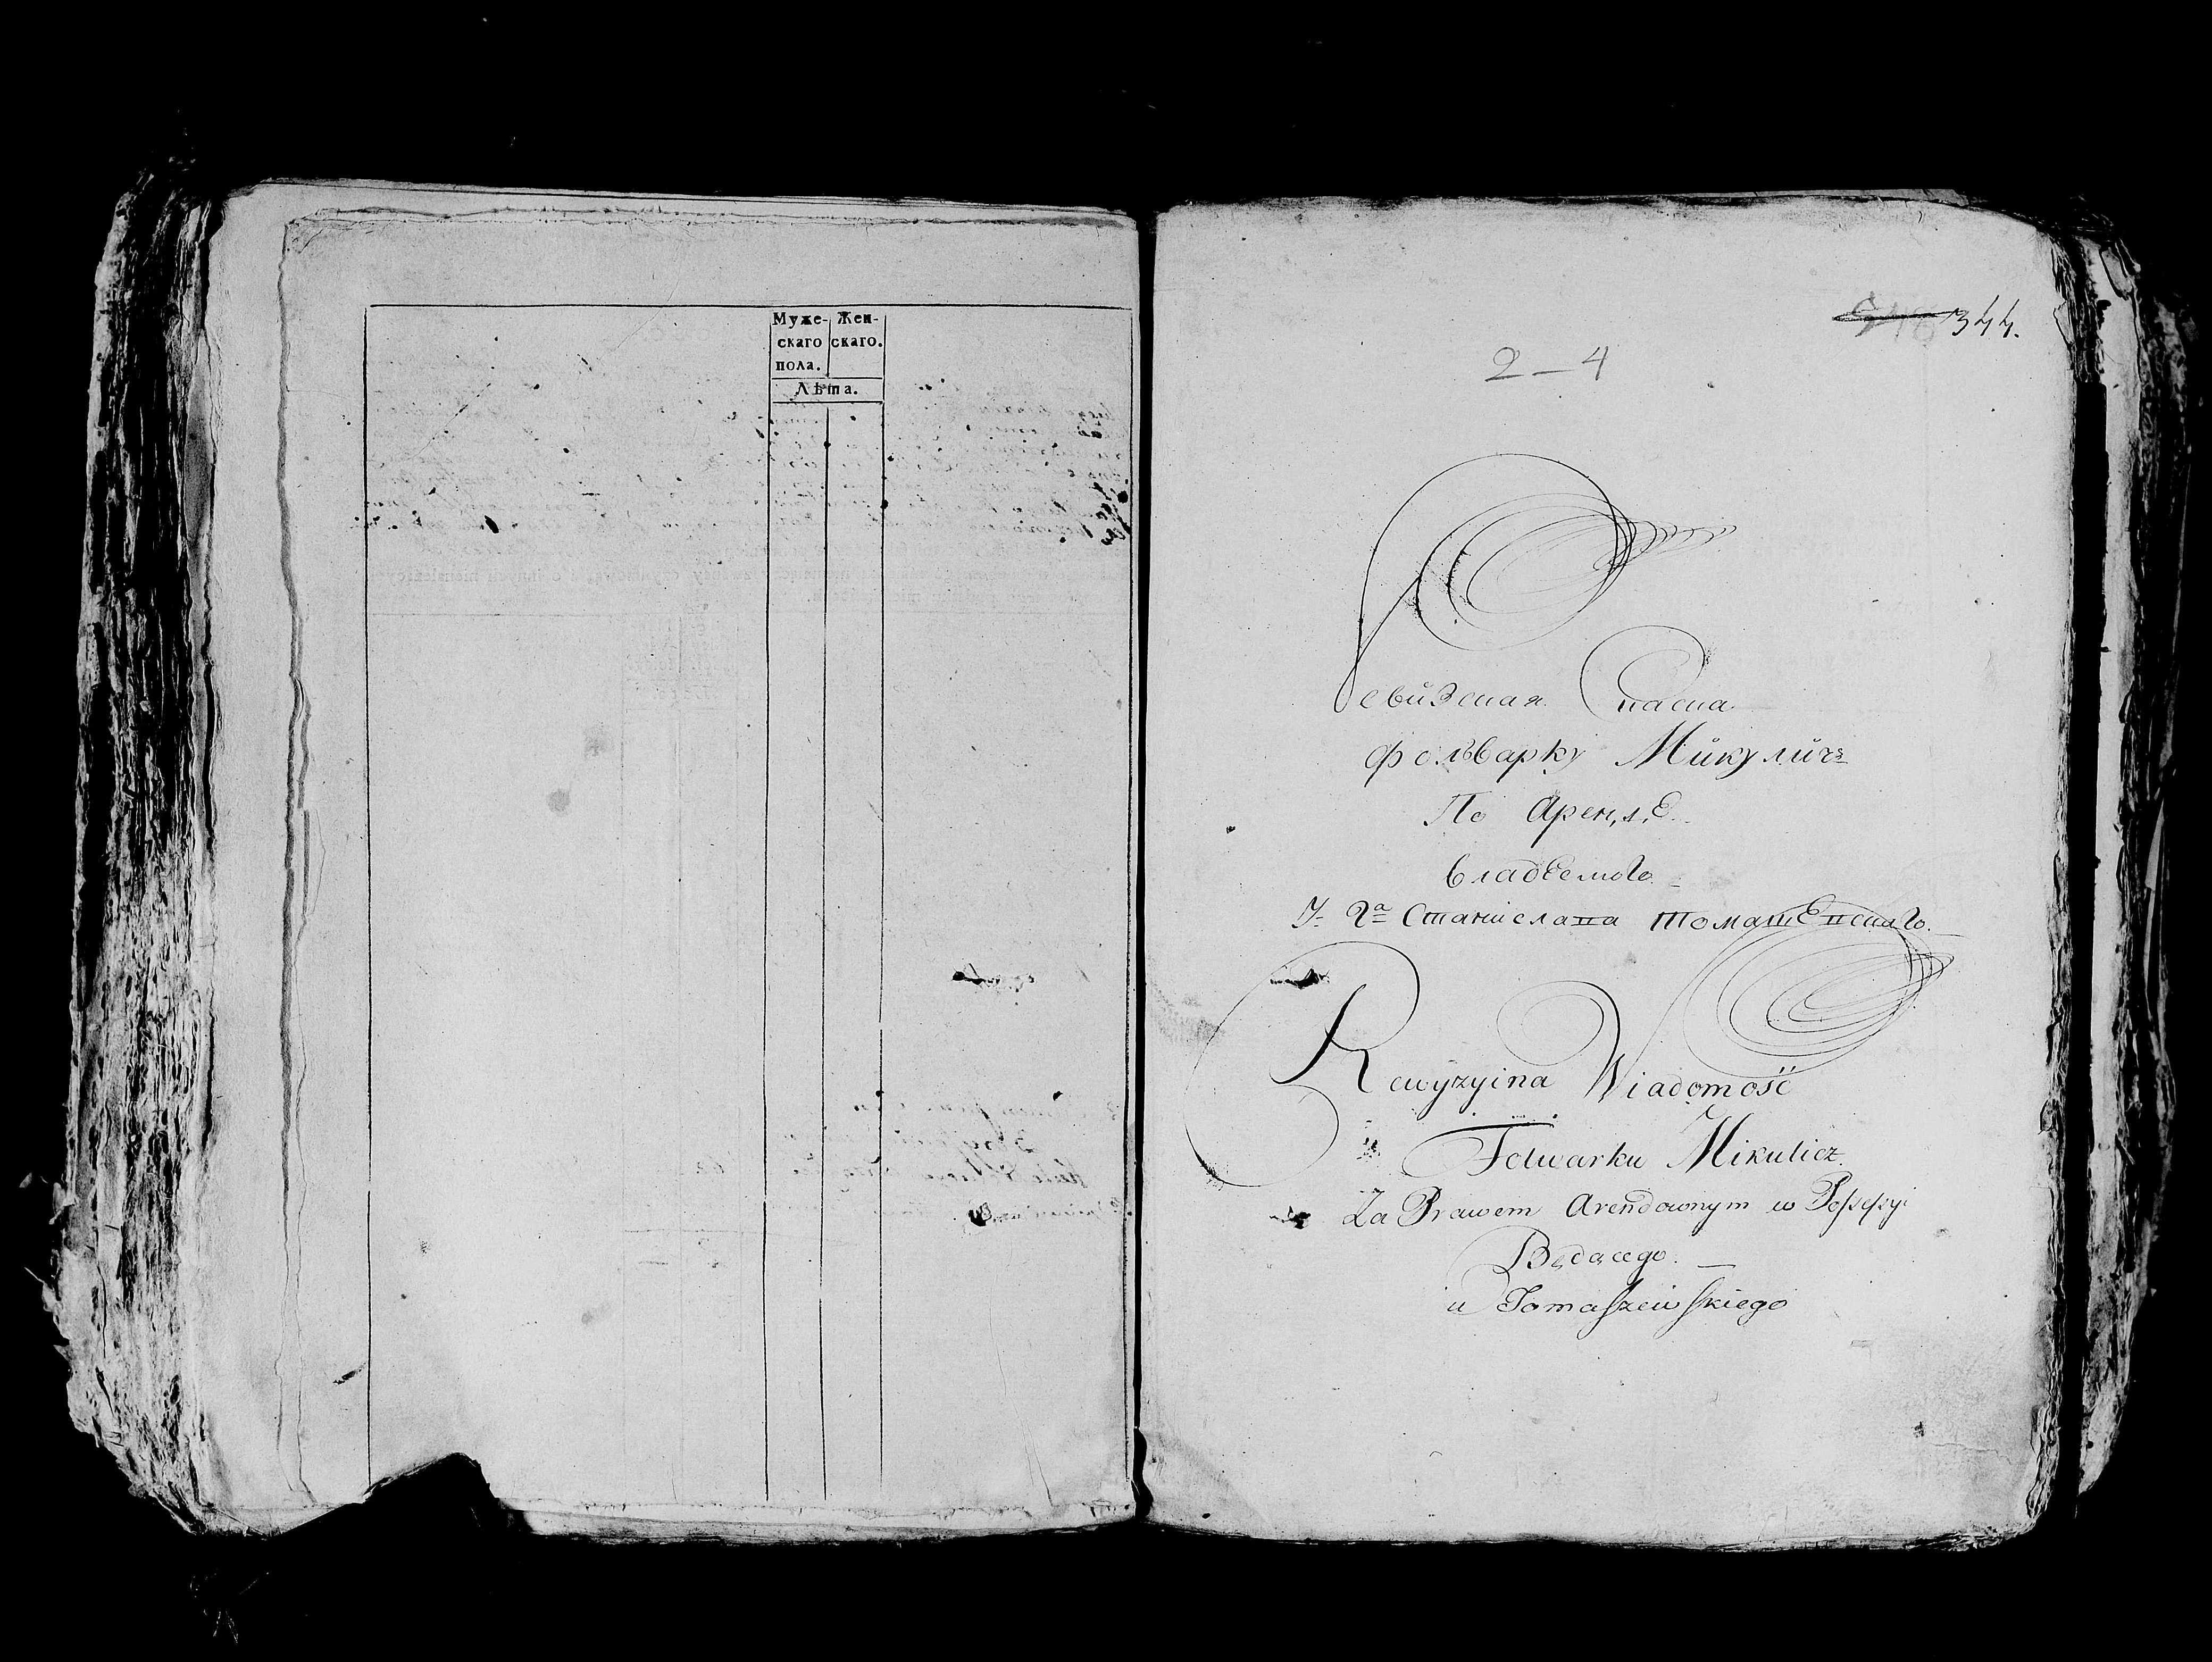 Муже- Жен-
скаго скаго.
пола.
Лѣта.
344.
2 – 4
Ревизская Сказка
фольварку Микулич
По Аренде
владеемого
У Г<sup>а</sup> Станислава Томашевскаго.
Rewyzyina Wiadomość
Folwarku Mikulicz
Za Prawem Arendownym w Possessyi
Będącego.
u Tomaszewskiego